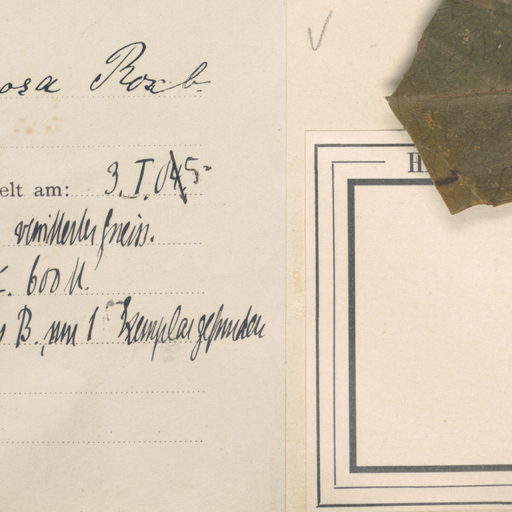 osa Roxb.
elt am: 3. I. 05
verwitterter Gneis.
600 M.
B., nur 1 Exemplar gefunden
H